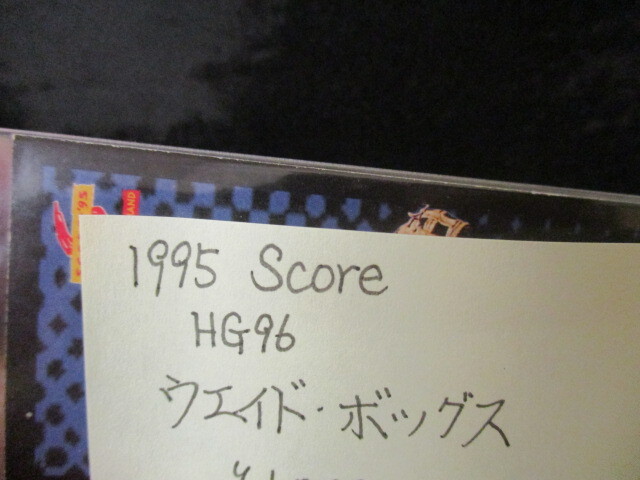 '95
1995 Score
HG96
ウエイド・ボッグス